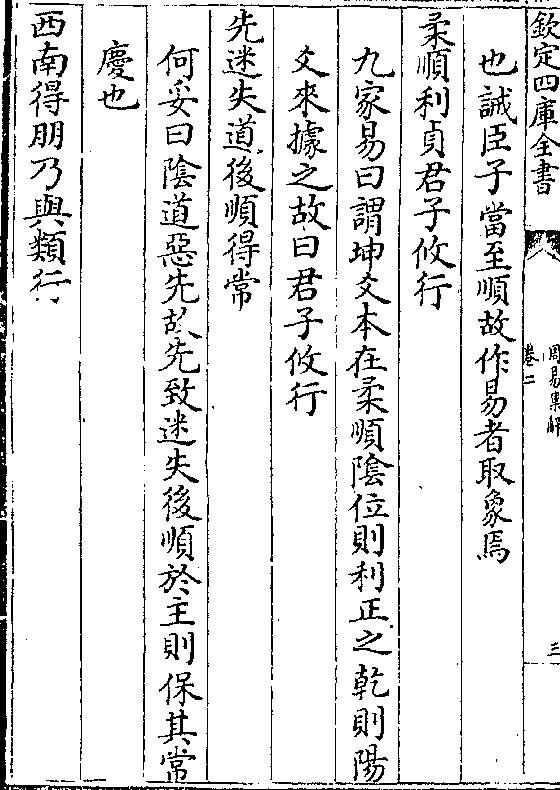 欽定四庫全書
周易集解
卷二
三
也誠臣子當至順故作易者取象焉
柔順利貞君子攸行
九家易曰謂坤爻本在柔順陰位則利正之乾則陽
爻來據之故曰君子攸行
先迷失道後順得常
何妥曰陰道惡先故先致迷失後順於主則保其常
慶也
西南得朋乃與類行